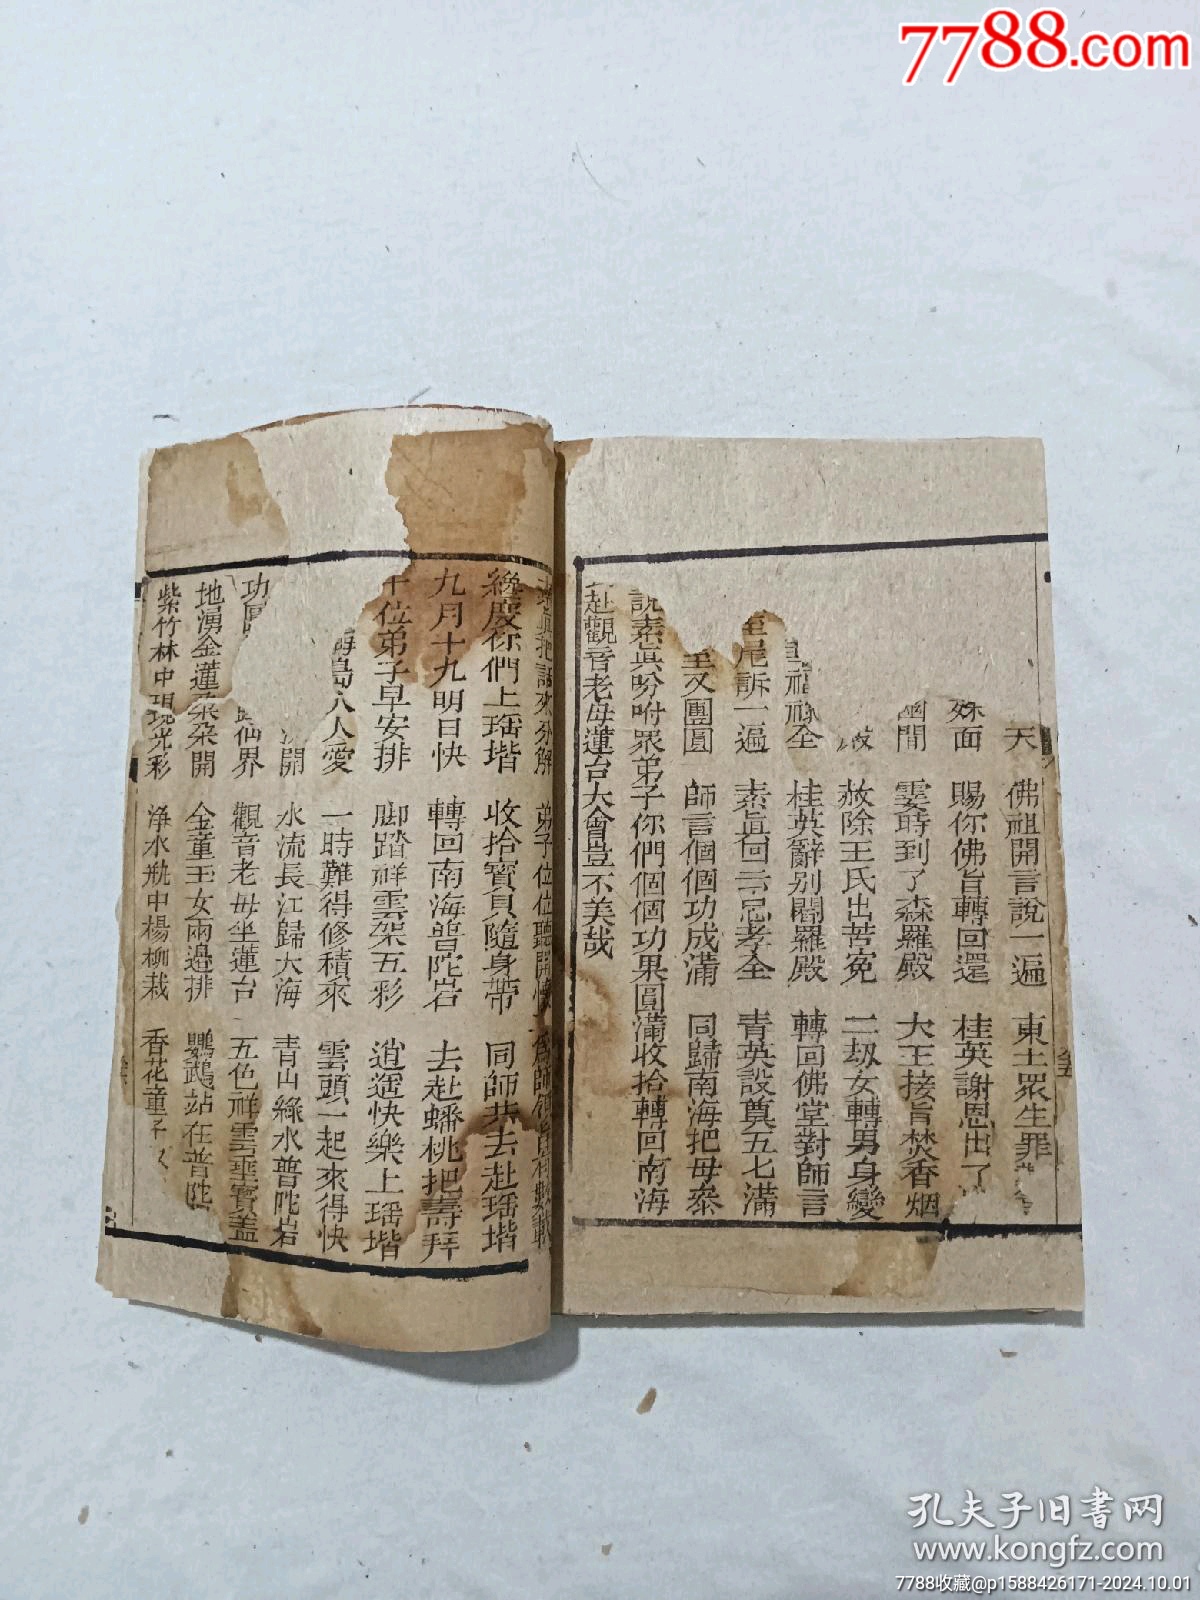 7788.com
天 佛祖開言說一遍 東土眾生罪
面 賜你佛旨轉回還 桂英謝恩出了
幽間 霎時到了森羅殿 大王接旨焚香烟
赦除王氏出苦冤 二劫女轉男身變
福祿全 桂英辭别閻羅殿 轉回佛堂對師言
至尾訴一遍 素眞回言忠孝全 青英設奠五七滿
至又團圓 師言個個功成滿 同歸南海把母泰
說素眞吩咐眾弟子你們個個功果圓滿收拾轉回南海
赴觀音老母蓮台大會豈不美哉
眞把話來分解 弟子位位聽開懷 爲師領旨有數載
纔度你們上瑶堦 收拾寳貝隨身帶 同師恭去赴瑶堦
九月十九明日快 轉回南海普陀岩 去赴蟠桃把壽拜
十位弟子早安排 脚踏祥雲架五彩 逍遥快樂上瑶堦
海島八人愛 一時難得修積來 雲頭一起來得快
開 水流長江歸大海 青山綠水普陀岩
功 仙界 觀音老母坐蓮台 五色祥雲垂寳盖
地湧金蓮朶朶開 金童玉女兩邊排 鸚鵡站在普陀
紫竹林中現光彩 淨水瓶中楊柳栽 香花童子
孔夫子旧書网
www.kongfz.com
7788收藏@p1588426171-2024.10.01